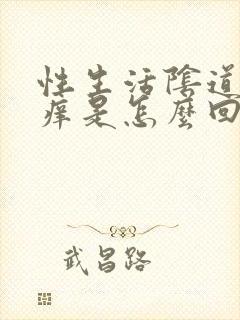 性生活陰道
痒是怎麼回
武昌路